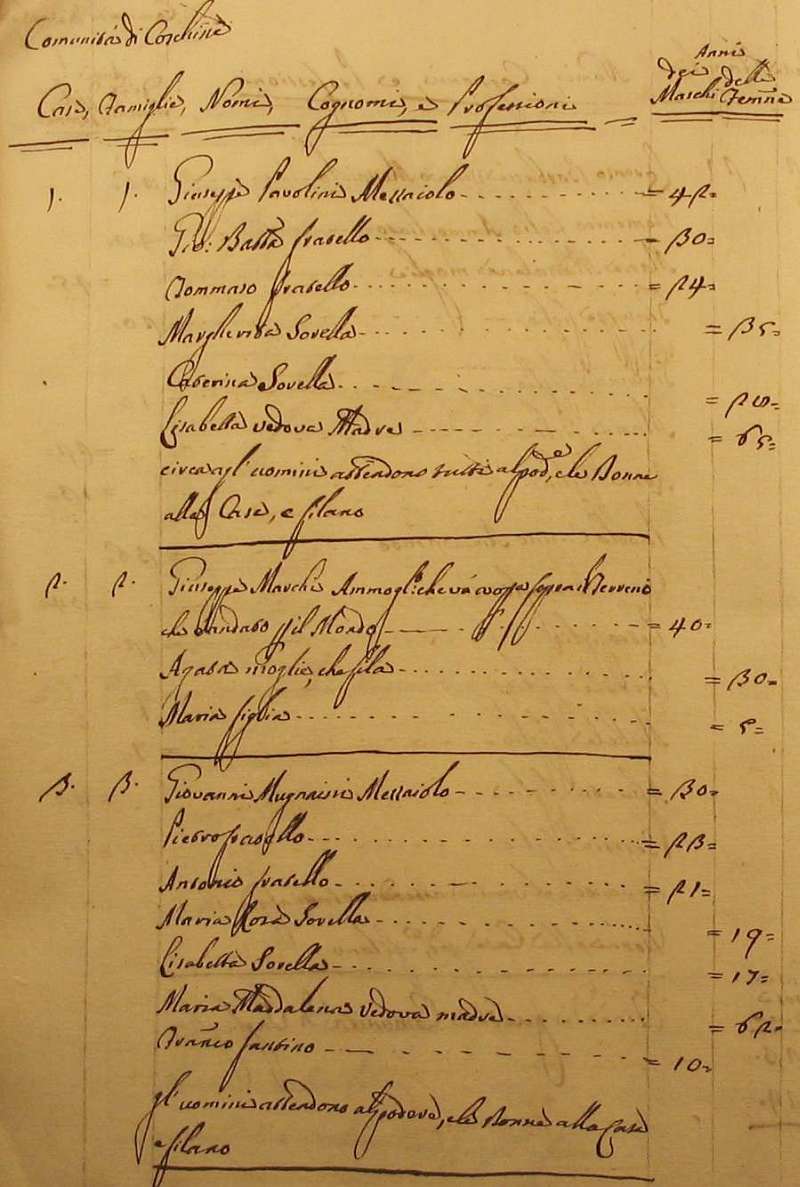 Comunità di
Anni
Case, Famiglie, Nomi, Cognomi, e Professioni dei Maschi delle Femñe
1. 1. Giuseppe Pavolini Mezzaiolo = 42=
Gio: Batta fratello = 30=
Tommaso fratello = 24=
Margherita Sorella = 35=
Caterina Sorella =
Lisabetta vedova Madre = 65=
circa gl'uomini attendono tutti al pod.e, e le Donne
alle Case, e filano
2. 2. Giuseppe Marchi Ammogl: che và sopra il Terreno
che andato p il Mondo = 40=
Agata moglie, che fila = 30=
Maria figlia =
3. 3. Giovanni Mugnaini Mezzaiolo = 30=
Pietro fratello = 23=
Antonio fratello = 21=
Maria Rosa Sorella = 19=
Lisabetta Sorella = 17=
Maria Maddalena vedova madre = 62=
Franco = 10=
gl'uomini attendono al podere, e le Donne alla Casa
e filano